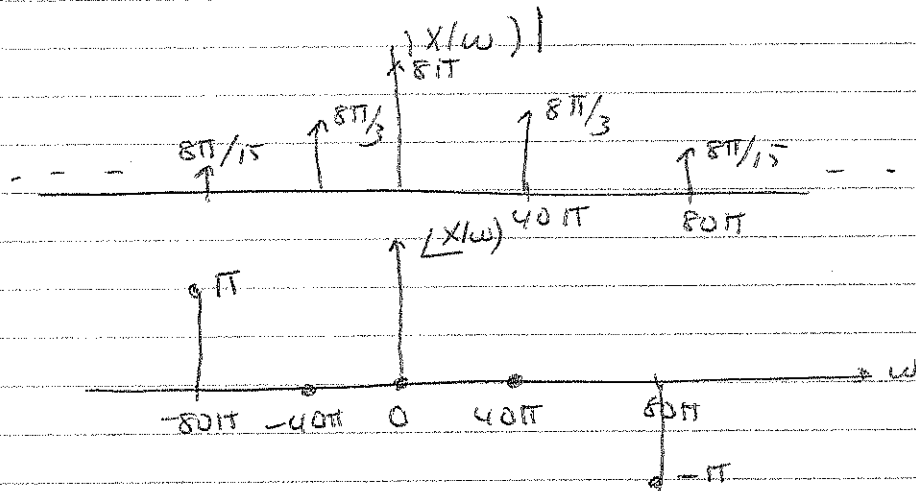 |X(ω)|
8π
8π/15 8π/3 8π/3 8π/15
- - - - -
40π 80π
∠X(ω)
π
ω
-80π -40π 0 40π 80π
-π